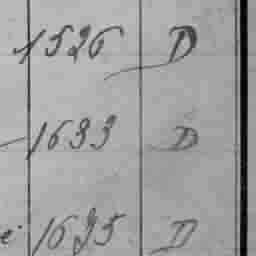 1526 D
1633 D
1635 D